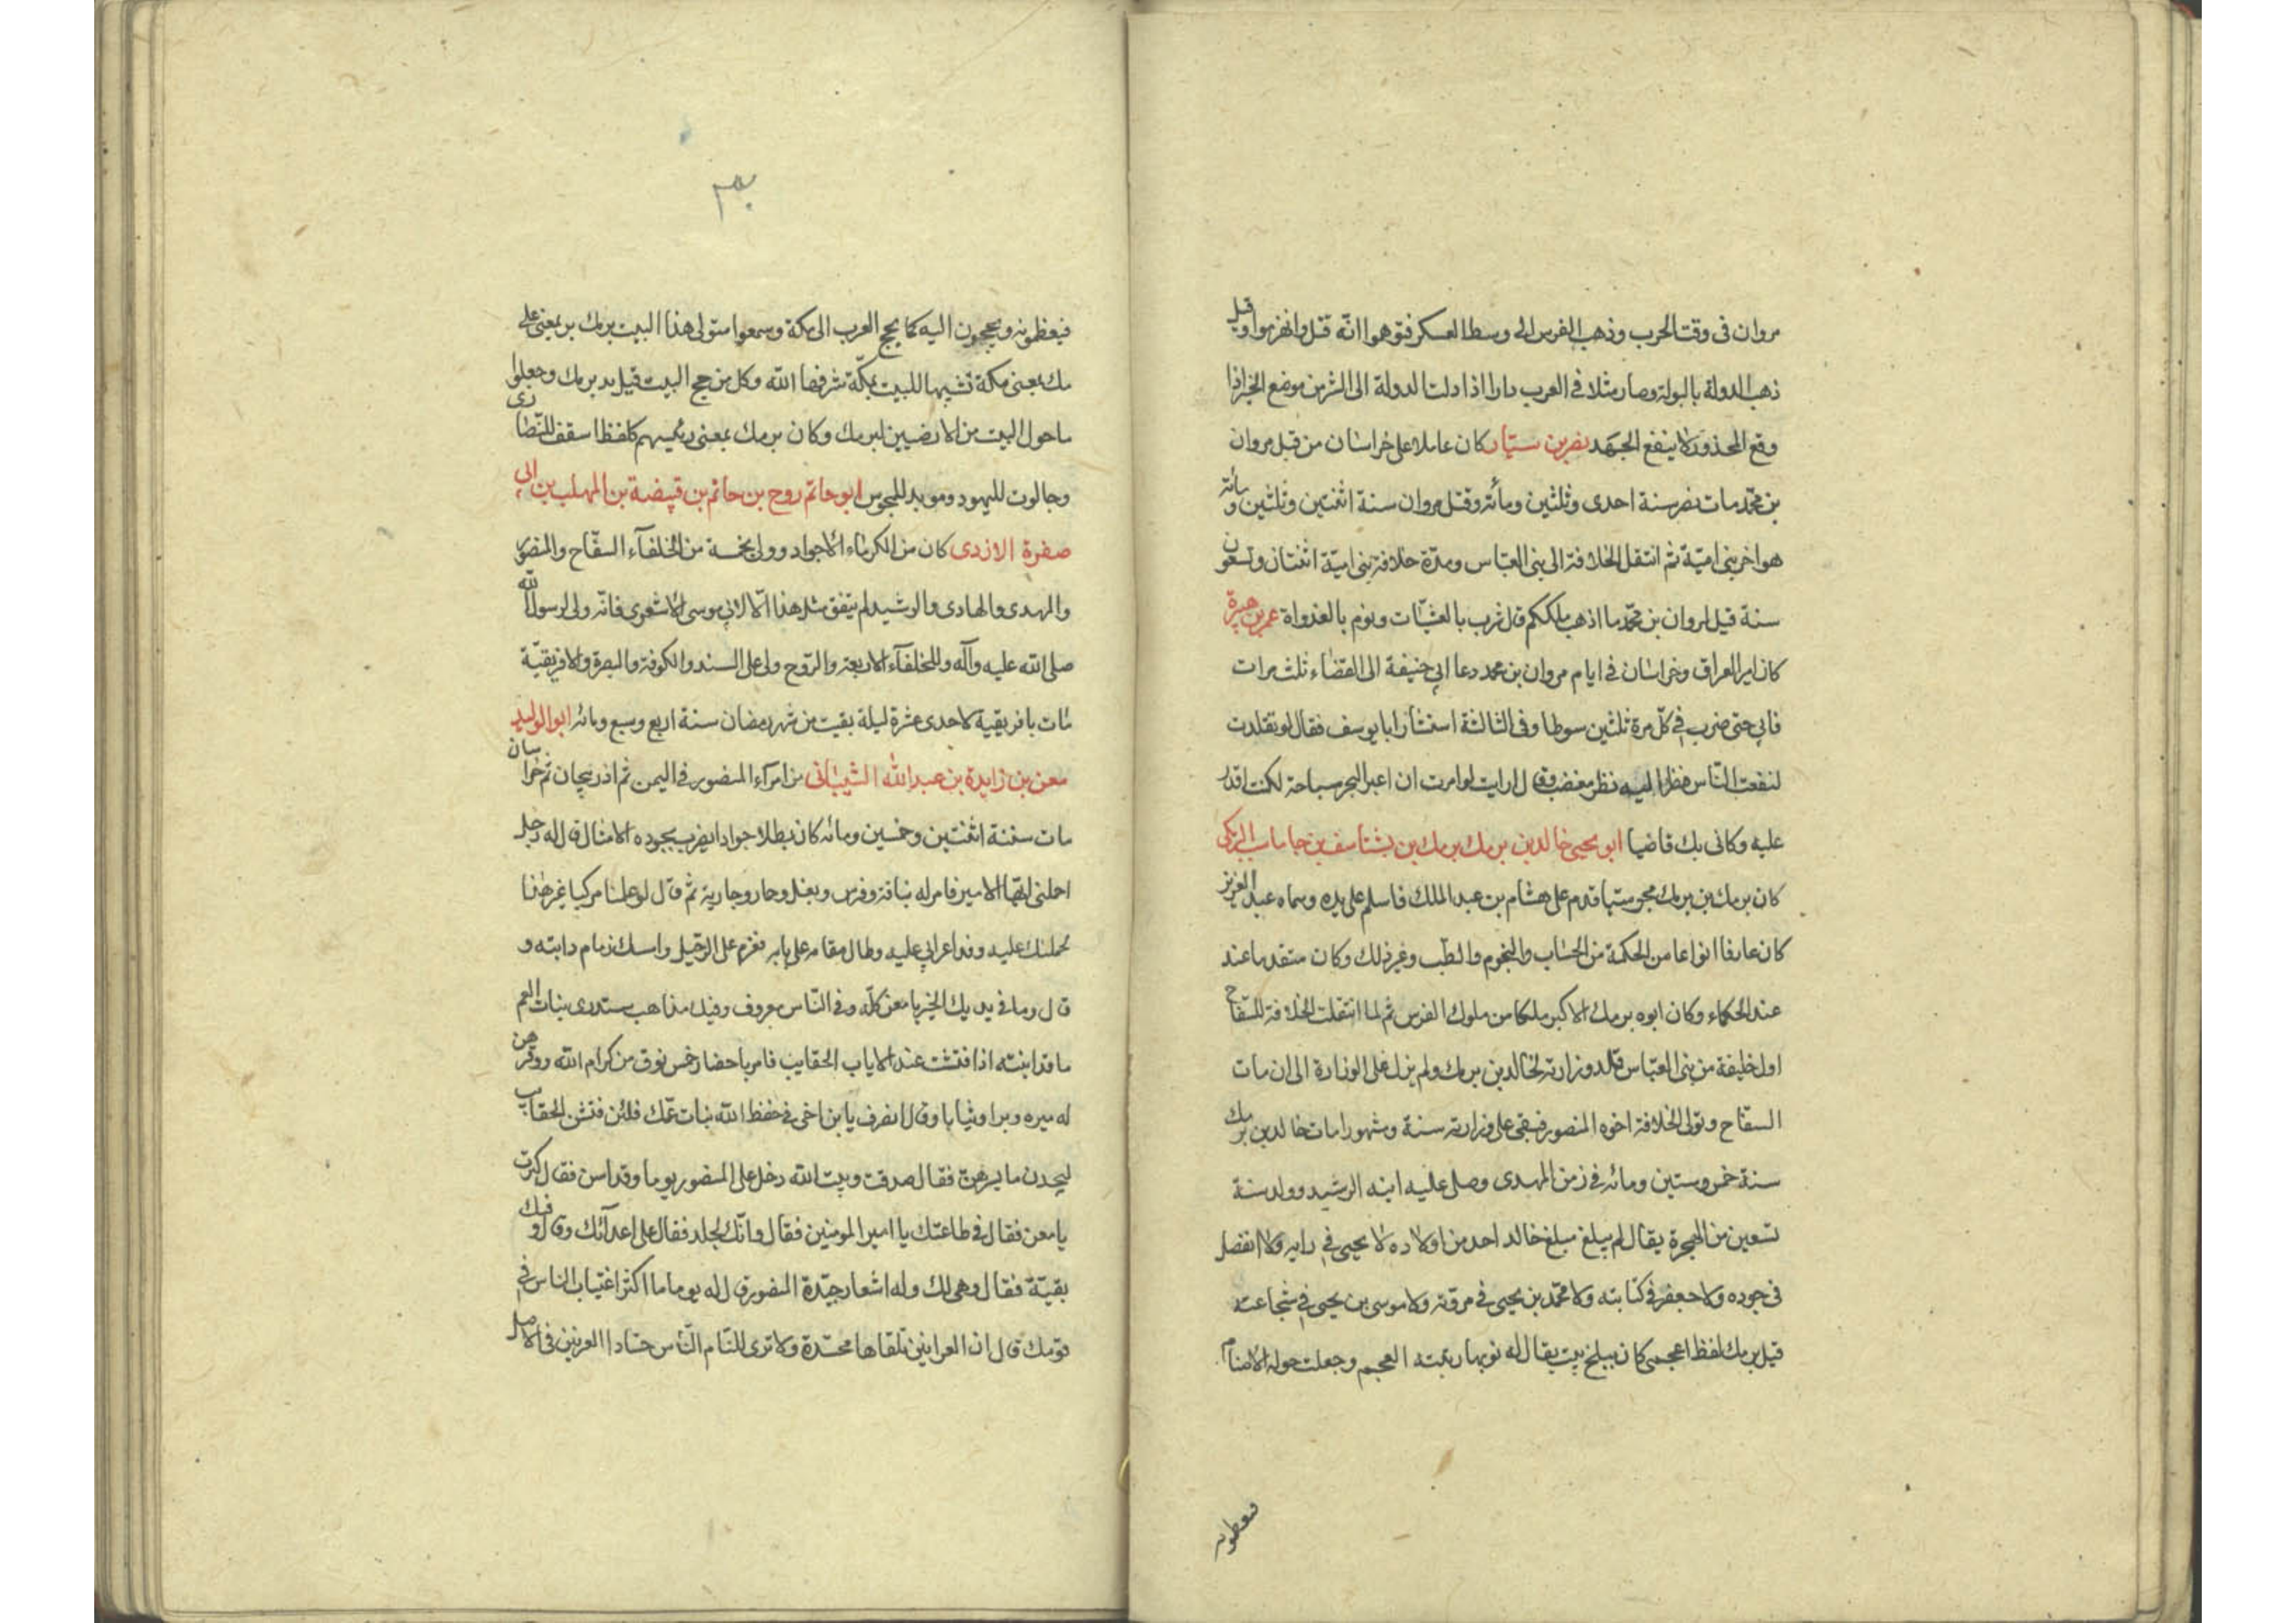 مروان فى وقت الحرب وذهب الفرس الى وسط العسكر فتوهموا انّه قتل وانهزموا وقيل
ذهب الدولة بالبولة وصار مثلا فى العرب دارا اذا دلت الدولة الى الشر من موضع الخير اذا
وقع المحذور لا ينفع الجهد نصر بن سيّار كان عاملا على خراسان من قبل مروان
بن محمّد مات نصر سنة احدى وثلثين ومائة وقتل مروان سنة اثنتين وثلثين ومائة
هو اخر بنى اميّة ثم انتقل الخلافة الى بنى العبّاس ومدّة خلافة بنى اميّة اثنتان وتسعون
سنة قيل لمروان بن محمّد ما اذهب ملككم قال شرب بالعشيّات ونوم بالغدواة عمر بن هبيرة
كان امير العراق وخراسان فى ايام مروان بن محمد دعا ابى حنيفة الى القضاء ثلث مرات
فابى حتى ضرب فى كلّ مرة ثلثين سوطا وفى الثالثة استشار ابا يوسف فقال لو تقلدت
لنفعت النّاس فنظر اليه نظر مغضب وقال ارايت لو امرت ان اعبر البحر سباحة لكنت اقدر
عليه وكانى بك قاضيا ابو يحيى خالد بن برمك برمك بن بشتاسف بن جاماسب البرمكى
كان برمك بن برمك مجوسيّا قدم على هشام بن عبد الملك فاسلم على يده وسماه عبد العزيز
كان عارفا انواعا من الحكمة من الحساب والنجوم والطب وغير ذلك وكان متقدما عند
عند الحكماء وكان ابوه برمك الاكبر ملكا من ملوك الفرس ثم لما انتقلت الخلافة للسفّاح
اول خليفة من بنى العبّاس قلد وزارته لخالد بن برمك ولم يزل على الوزارة الى ان مات
السفّاح وتولى الخلافة اخوه المنصور فبقى على وزارته سنة وشهورا مات خالد بن برمك
سنة خمس وستين ومائه فى زمن المهدى وصلى عليه ابنه الرشيد وولد سنة
تسعين من الهجرة يقال لم يبلغ مبلغ خالد احد من اولاده لا يحيى فى رايه ولا الفضل
فى جوده ولا جعفر فى كتابته ولا محمّد بن يحيى فى مروّته ولا موسى بن يحيى فى شجاعته
قيل برمك لفظ اعجمى كان ببلخ بيت يقال له نوبهار بنته العجم وجعلت حوله الاصنام
فيعظمونه
٣٠
فيعظمونه ويحجون اليه كما يحج العرب الى مكة وسموا متولى هذا البيت برمك بر بمعنى على
مك بمعنى مكة تشبيها للبيت بمكّة شرفها الله وكل من حج البيت قبل يد برمك وجعلوا
ما حول البيت من الارضيين لبرمك وكان برمك بمعنى رئيسهم كلفظ اسقف للنّصارى
وجالوت لليهود وموبد للمجوس ابو حاتم روح بن حاتم بن قبيضة بن المهلب بن ابى
صفرة الازدى كان من الكرماء الاجواد وولى بخمسة من الخلفآء السفّاح والمنصور
والمهدى والهادى والرشيد لم يتفق مثل هذا الّا لابى موسى الاشعرى فانّه ولى لرسول الله
صلى الله عليه وآله وللخلفآء الاربعة والرّوح ولى على السند والكوفة والبصرة والافريقيّة
مات بافريقية لاحدى عشرة ليلة بقيت من شهر رمضان سنة اربع وسبع ومائه ابو الوليد
معن بن زايدة بن عبد الله الشيبانى من امرآء المنصور فى اليمن ثم اذربيجان ثم خراسان
مات سنة اثنتين وخمسين ومائه كان بطلا جوادا يضرب بجوده الامثال قال له رجل
احملنى ايّها الامير فامر له بناقة وفرس وبغل وحمار وجارية ثم قال لو علمنا مركبا غير هذا
لحملتك عليه وفد اعرابى عليه وطال مقامه على بابه فعزم على الرّحيل وامسك زمام دابته و
قال وما فى يديك الخير يا معن كلّه وفى النّاس معروف وفيك مذاهب ستدرى بنات العم
ما قد ابنته اذا فتشت عند الاياب الحقايب فامر باحضار خمس نوق من كرام الله ووقرهن
له ميره وبرا وثيابا وقال انصرف يا بن اخى فى حفظ الله بنات عمّك فلئن فتشن الحقايب
ليجدن ما يسرهنّ فقال صدقت وبيت الله دخل على المنصور يوما وقد اسن فقال كبرت
يا معن فقال فى طاعتك يا امير المومنين فقال وانّك لجلد فقال على اعدآئك وقال وفيك
بقيّة فقال وهى لك وله اشعار جيّدة المنصور قال له يوما ما اكثر اغتياب الناس فى
قومك قال ان العرانين تلقاها محسّدة ولا ترى للئام النّاس حسّادا العرنين فى الاصل